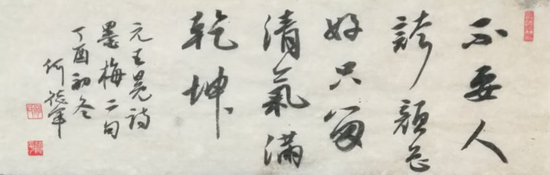 不要人
誇顔色
好只留
清氣滿
乾坤
元王冕詩
墨梅二句
丁酉初冬
何